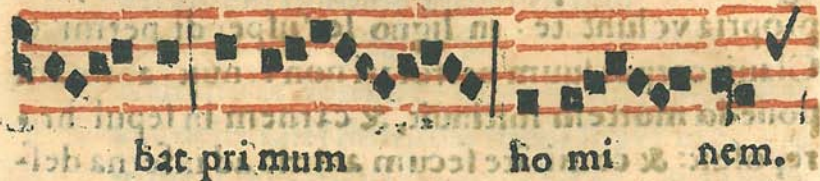 bat pri mum ho mi nem.